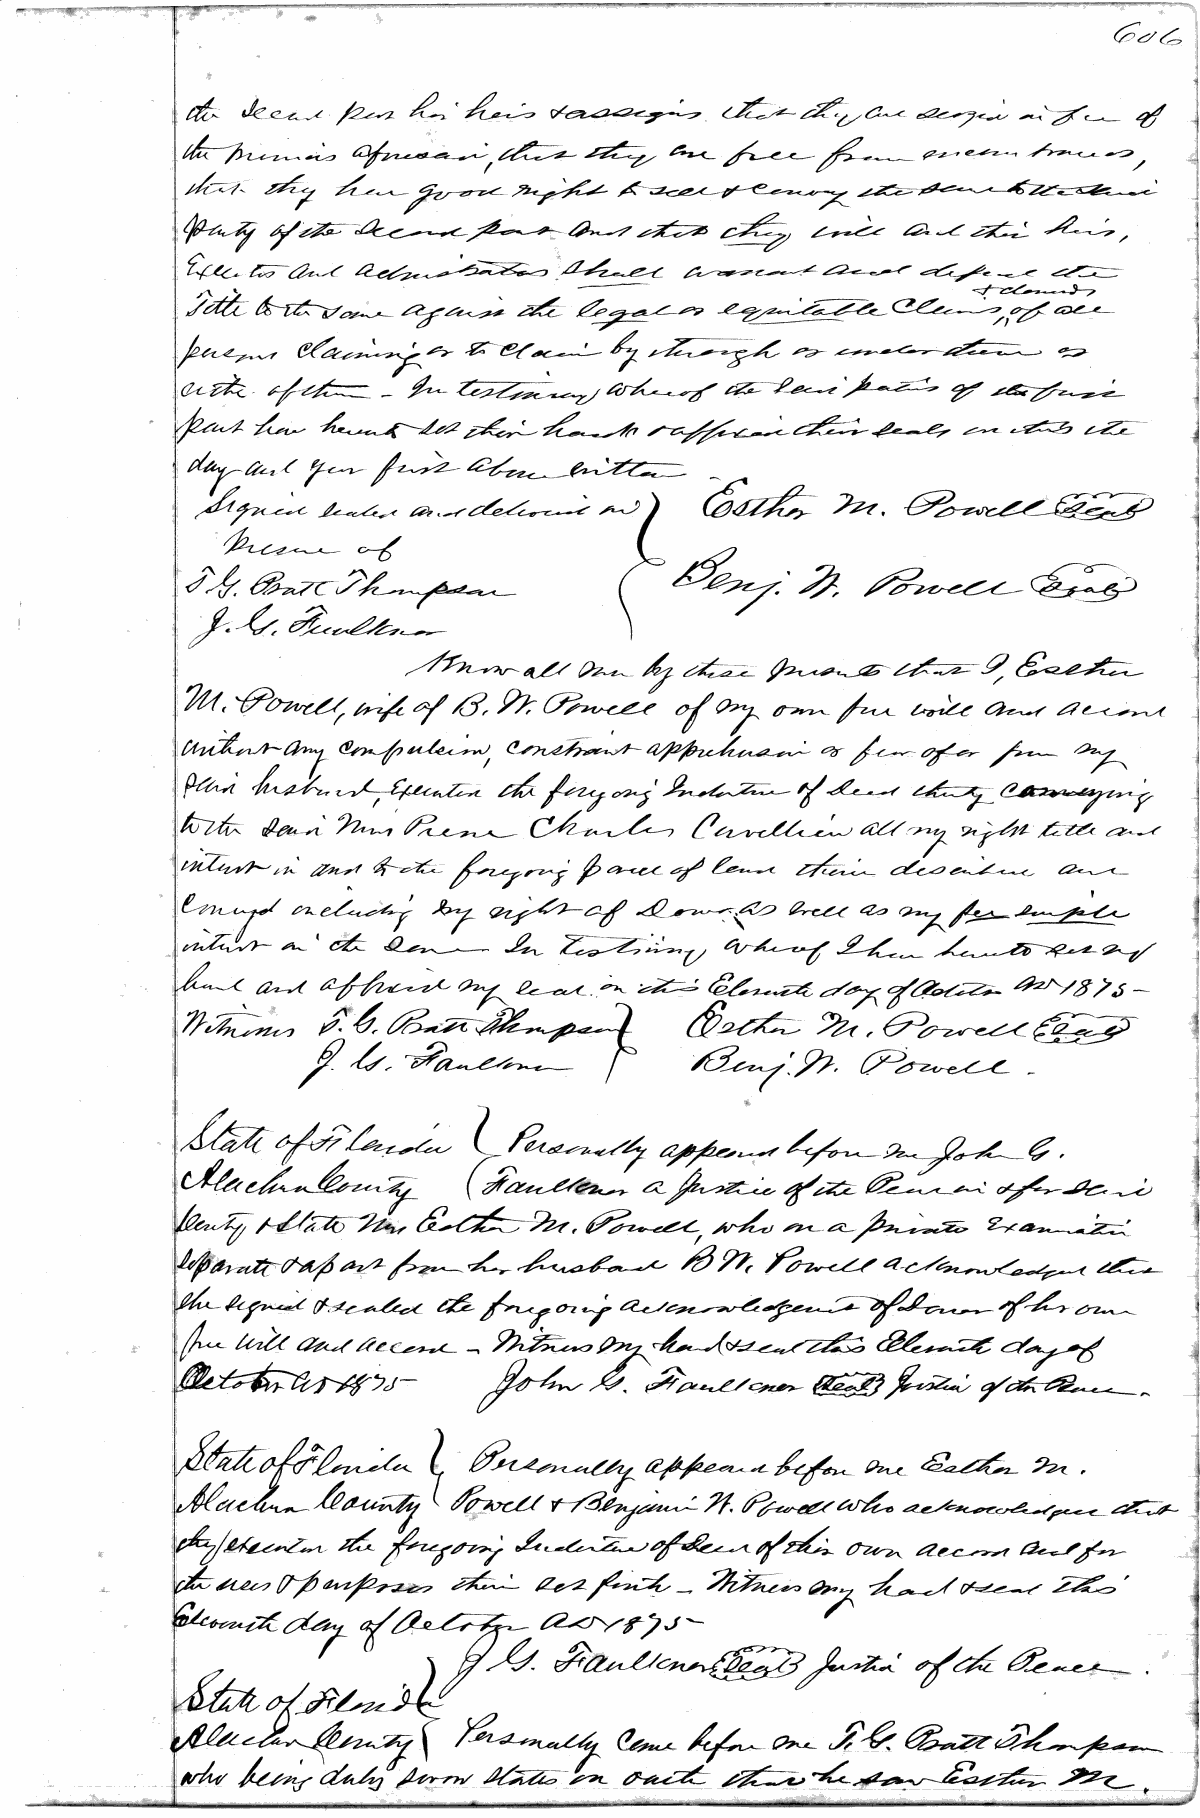 606
the Second part his heirs & assigns that they are seized in fee of
the premises aforesaid, that they are free from encumbrances,
that they have good right to sell & convey the same to the said
party of the Second part and that they will and their heirs,
Executors and administrators shall warrant and defend the
& demands
Title to the same against the legal or equitable Claims, of all
persons Claiming or to Claim by through or under them or
either of them - In testimony whereof the said parties of the first
part have hereunto set their hands & affixed their seals on this the
day and year first above written
Signed sealed and delivered in } Esther M. Powell Seal
presence of
T. G. Pratt Thompson Benj. W. Powell Seal
J. G. Faulkner
Know all men by these presents that I, Esther
M. Powell, wife of B. W. Powell of my own free will and accord
without any compulsion, constraint apprehension or fear of or from my
said husband, Executed the foregoing Indenture of Deed thereby conveying
to the said Pierre Charles Cavellier all my right title and
interest in and to the foregoing parcel of land therein described and
Conveyed including my right of Dower as well as my fee simple
interest in the same In testimony whereof I have hereto set my
hand and affixed my seal on this Eleventh day of October AD 1875 -
Witnesses T. G. Pratt Thompson } Esther M. Powell Seal
J. G. Faulkner Benj. W. Powell.
State of Florida } Personally appeared before me John G.
Alachua County Faulkner a Justice of the Peace in & for said
County & State Mrs Esther M. Powell, who on a private Examination
separate & apart from her husband B W. Powell acknowledged that
she signed & sealed the foregoing acknowledgement of Dower of her own
free will and accord - Witness my hand & seal this Eleventh day of
October AD 1875 John G. Faulkner Seal Justice of the Peace.
State of Florida } Personally appeared before me Esther M.
Alachua County Powell & Benjamin W. Powell who acknowledges that
they executed the foregoing Indenture of Deed of their own accord and for
the uses & purposes therein set forth - Witness my hand & seal this
Eleventh day of October AD 1875
J G. Faulkner Seal Justice of the Peace.
State of Florida }
Alachua County Personally Came before me T. G. Pratt Thompson
who being duly sworn states on oath that he saw Esther M.